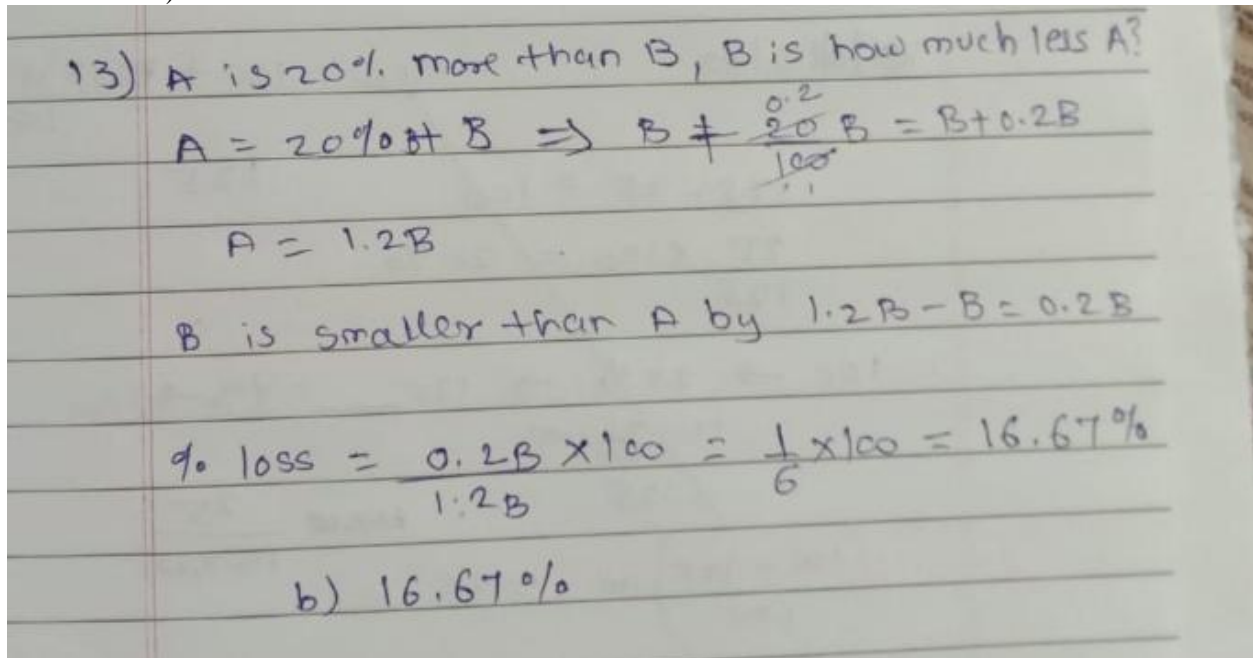 13) A is 20% more than B, B is how much less A?
A = 20% of B ⇒ B + 20/100 B = B + 0.2B
0.2
A = 1.2B
B is smaller than A by 1.2B - B = 0.2B
% loss = 0.2B/1.2B × 100 = 1/6 × 100 = 16.67%
b) 16.67%